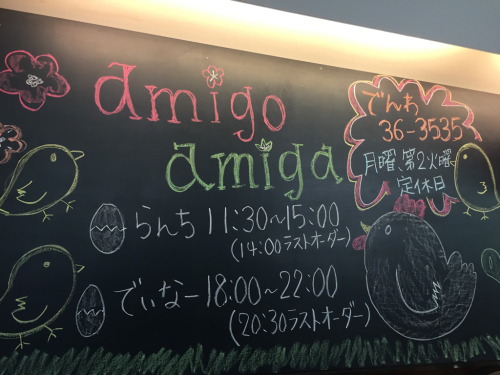 amigo
amiga
でんわ
36-3535
月曜、第2火曜
定休日
らんち 11:30~15:00
(14:00 ラストオーダー)
でぃなー 18:00~22:00
(20:30 ラストオーダー)